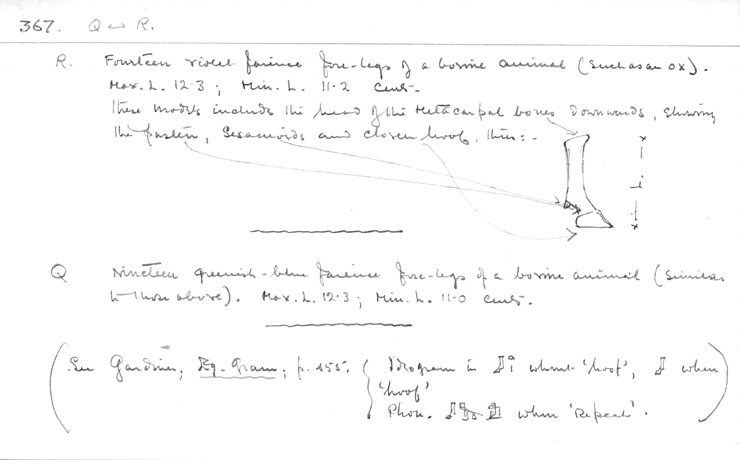 367. Q and R.
R. Fourteen violet faience fore-legs of a bovine animal (such as an ox).
Max. L. 12.3 ; Min. L. 11.2 cents.
These models include the head of the Metacarpal bones downwards, showing
the pastern, Sesamoids and cloven hoof, thus:-
Q Nineteen greenish-blue faience fore-legs of a bovine animal (similar
to those above). Max. L. 12.3 ; Min. L. 11.0 cents.
(See Gardiner, Eg. Gram., p. 455, { Ideogram in 'hoof', 'hoof'
Phon. when 'Repeat'. )